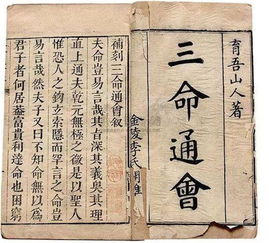 育吾山人著
三命通會
金陵李氏
補刻三命通會叙
夫命豈易言哉其旨深其義奧其理
直上通夫乾元無極之後是以聖人
惟恐人之鈎玄索隱而罕言之命豈
易言哉然夫子又曰不知命無以為
君子者何居葢富貴利達命也困窮